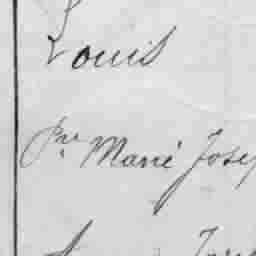 Louis
Pre Marié Jose